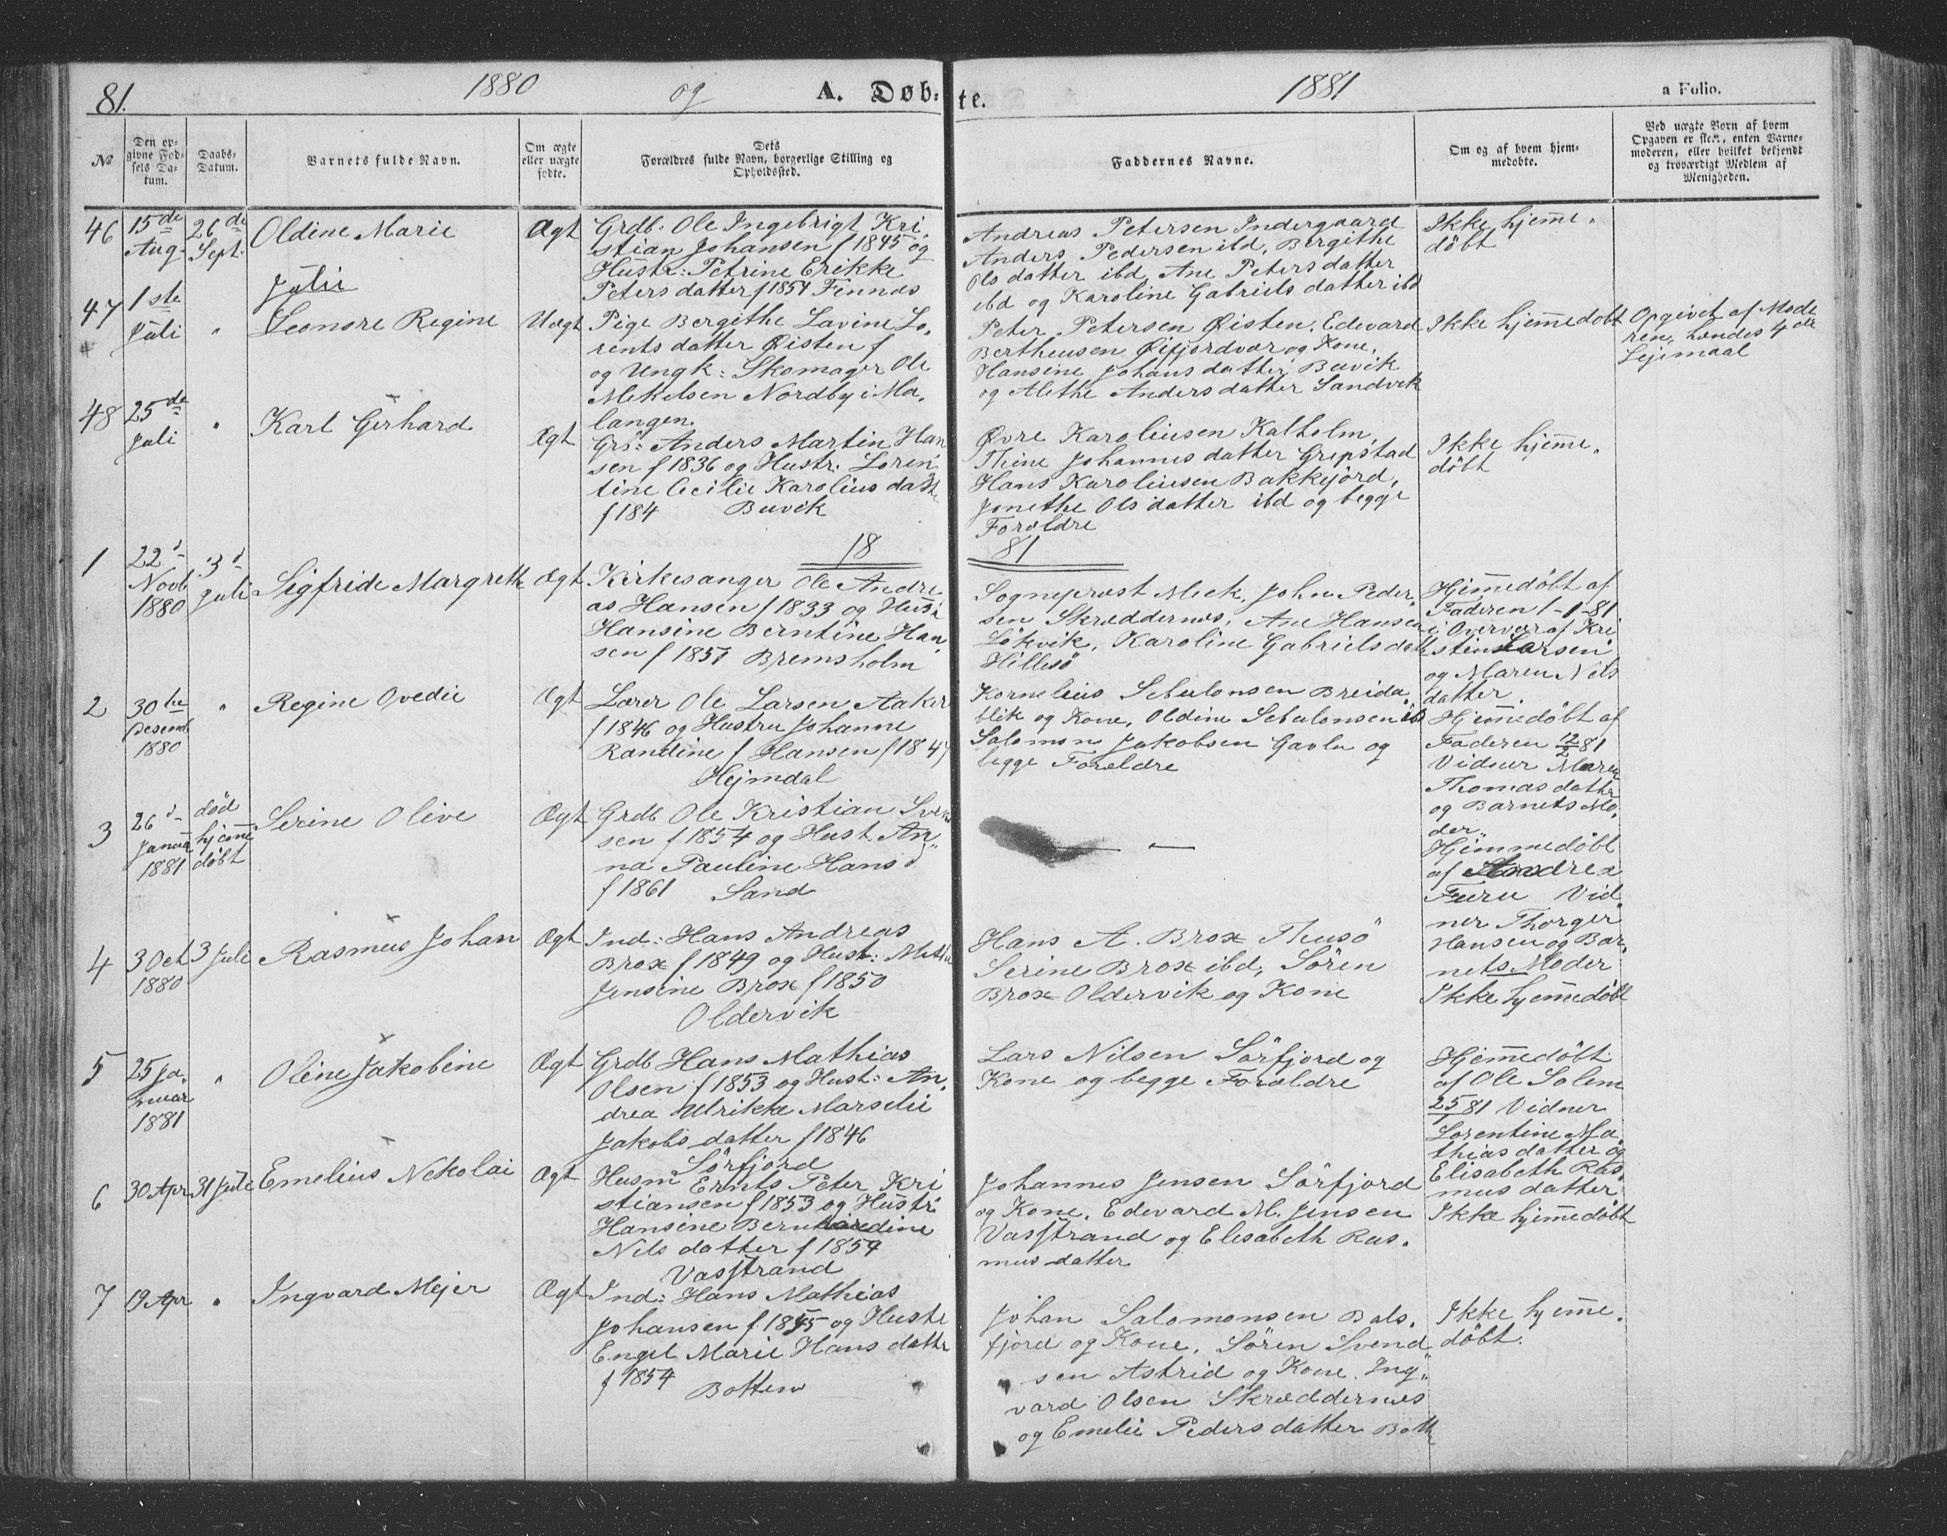 81. 1880 og A. Døb-
te. 1881 a Folio.
№
Den op-
givne Fød-
sels Da-
tum.
Daabs-
Datum.
Barnets fulde Navn.
Om ægte
eller uægte
fødte.
Dets
Forældres fulde Navn, borgerlige Stilling og
Opholdssted.
Faddernes Navne.
Om og af hvem hjem-
medøbte.
Ved uægte Børn af hvem
Opgaven er skeet, enten Barne-
moderen, eller hvilket bekjendt
og troværdigt Medlem af
Menigheden.
46
15de
Aug.
26de
Sept:
Oldine Marie
Ægt
Grdb: Ole Ingebrigt Kri-
stian Johansen f 1845 og
Hustr: Petrine Erikke
Peters datter f 1857 Finnæs
Andreas Petersen Indergaard
Anders Pedersen ibd, Bergithe
Ols datter ibd, Ane Peters datter
ibd og Karoline Gabriels datter ibd
Ikke hjemme-
døbt
47
1ste
Juli
"
Julie
Leonore Regine
Uægt
Pige Bergithe Lavine Lo-
rents datter Øisten f
og Ungk: Skomager Ole
Mekelsen Nordby i Ma-
langen
Peter Petersen Øisten, Edevard
Bertheusen Øifjordvær og Kone,
Hansine Johans datter Buvik
og Alethe Anders datter Sandvik
Ikke hjemmedøbt
Opgivet af Mode
ren, hendes 4de
Lejemaal
48
25de
Juli
"
Karl Gerhard
Ægt
Grs: Anders Martin Han
sen f 1836 og Hustr: Loren-
tine Cecilie Karolius datt
f 184 Buvik
Øvre Karoliusen Kalholm,
Thine Johannes datter Grepstad
Hans Karoliusen Bakkejord,
Jonethe Ols datter ibd og begge
Forældre
Ikke hjemme-
døbt
18
81
1
22d
Novb
1880
3d
Juli
Sigfride Margreth
Ægt
Kirkesanger Ole Andre
as Hansen f 1833 og Hus:
Hansine Berntine Han-
sen f 1857 Bremsholm
Sogneprest Meck, John Peder-
sen Skreddernes, Ane Hansen
Løkvik, Karoline Gabriels datt
Hillesö
Hjemmedøbt af
Faderen 1-1-81
i Overvær af Kri
stine Larsen
og Maren Nils
datter.
2
30te
Desemb
1880
"
Regine Ovedie
Ægt
Lærer Ole Larsen Aaker
f 1846 og Hustru Johanne
Randine f Hansen f 1847
Hejmdal
Kornelius Sebulonsen Breida-
blik og Kone, Oldine Sebulonsen ibd
Salomon Jakobsen Gavlu og
begge Forældre
Hjemmedøbt af
Faderen 12/2 81
Vidner Maren
Thomas datter
og Barnets Mo-
der
3
26d
Januar
1881
død
hjemme
døbt
Serine Olive
Ægt
Grdb Ole Kristian Sven
sen f 1854 og Hust: An-
na Pauline Hans d
f 1861 Sand
— —
Hjemmedøbt
af Andrea
Furu Vid-
ner Thorger
Hansen og Bar-
nets Moder
4
3 Oct
1880
3 Juli
Rasmus Johan
Ægt
Ind: Hans Andreas
Brox f 1849 og Hust: Metha
Jensine Brox f 1850
Oldervik
Hans A. Brox Tusö
Serine Brox ibd, Sören
Brox Oldervik og Kone
Ikke hjemmedøbt
5
25 Ja-
nuar
1881
"
Oline Jakobine
Ægt
Grdb Hans Mathias
Olsen f 1853 og Hust: An-
drea Ulrikke Marselie
Jakobs datter f 1846
Sörfjord
Lars Nilsen Sörfjord og
Kone og begge Forældre
Hjemmedøbt
af Ole Solem
25/1 81 Vidner
Lorentine Ma
thias datter og
Elisabeth Ras-
mus datter.
6
30 Apr
31 Jule
Emelius Nekolai
Ægt
Husm Ernts Peter Kri
stiansen f 1853 og Hustr:
Hansine Bernhardine
Nils datter f 1859
Vasstrand
Johannes Jensen Sörfjord
og Kone, Edevard M. Jensen
Vasstrand og Elisabeth Ras-
mus datter
Ikke hjemmedøbt
7
19 Apr
"
Ingvard Mejer
Ægt
Ind: Hans Mathias
Johansen f. 1855 og Hustr
Engel Marie Hans datter
f 1854 Botten
Johan Salomonsen Bals-
fjord og Kone, Sören Svend-
sen Astrid og Kone, Ing-
vard Olsen Skræddernes
og Emelie Peders datter Both
Ikke hjemme-
døbt.